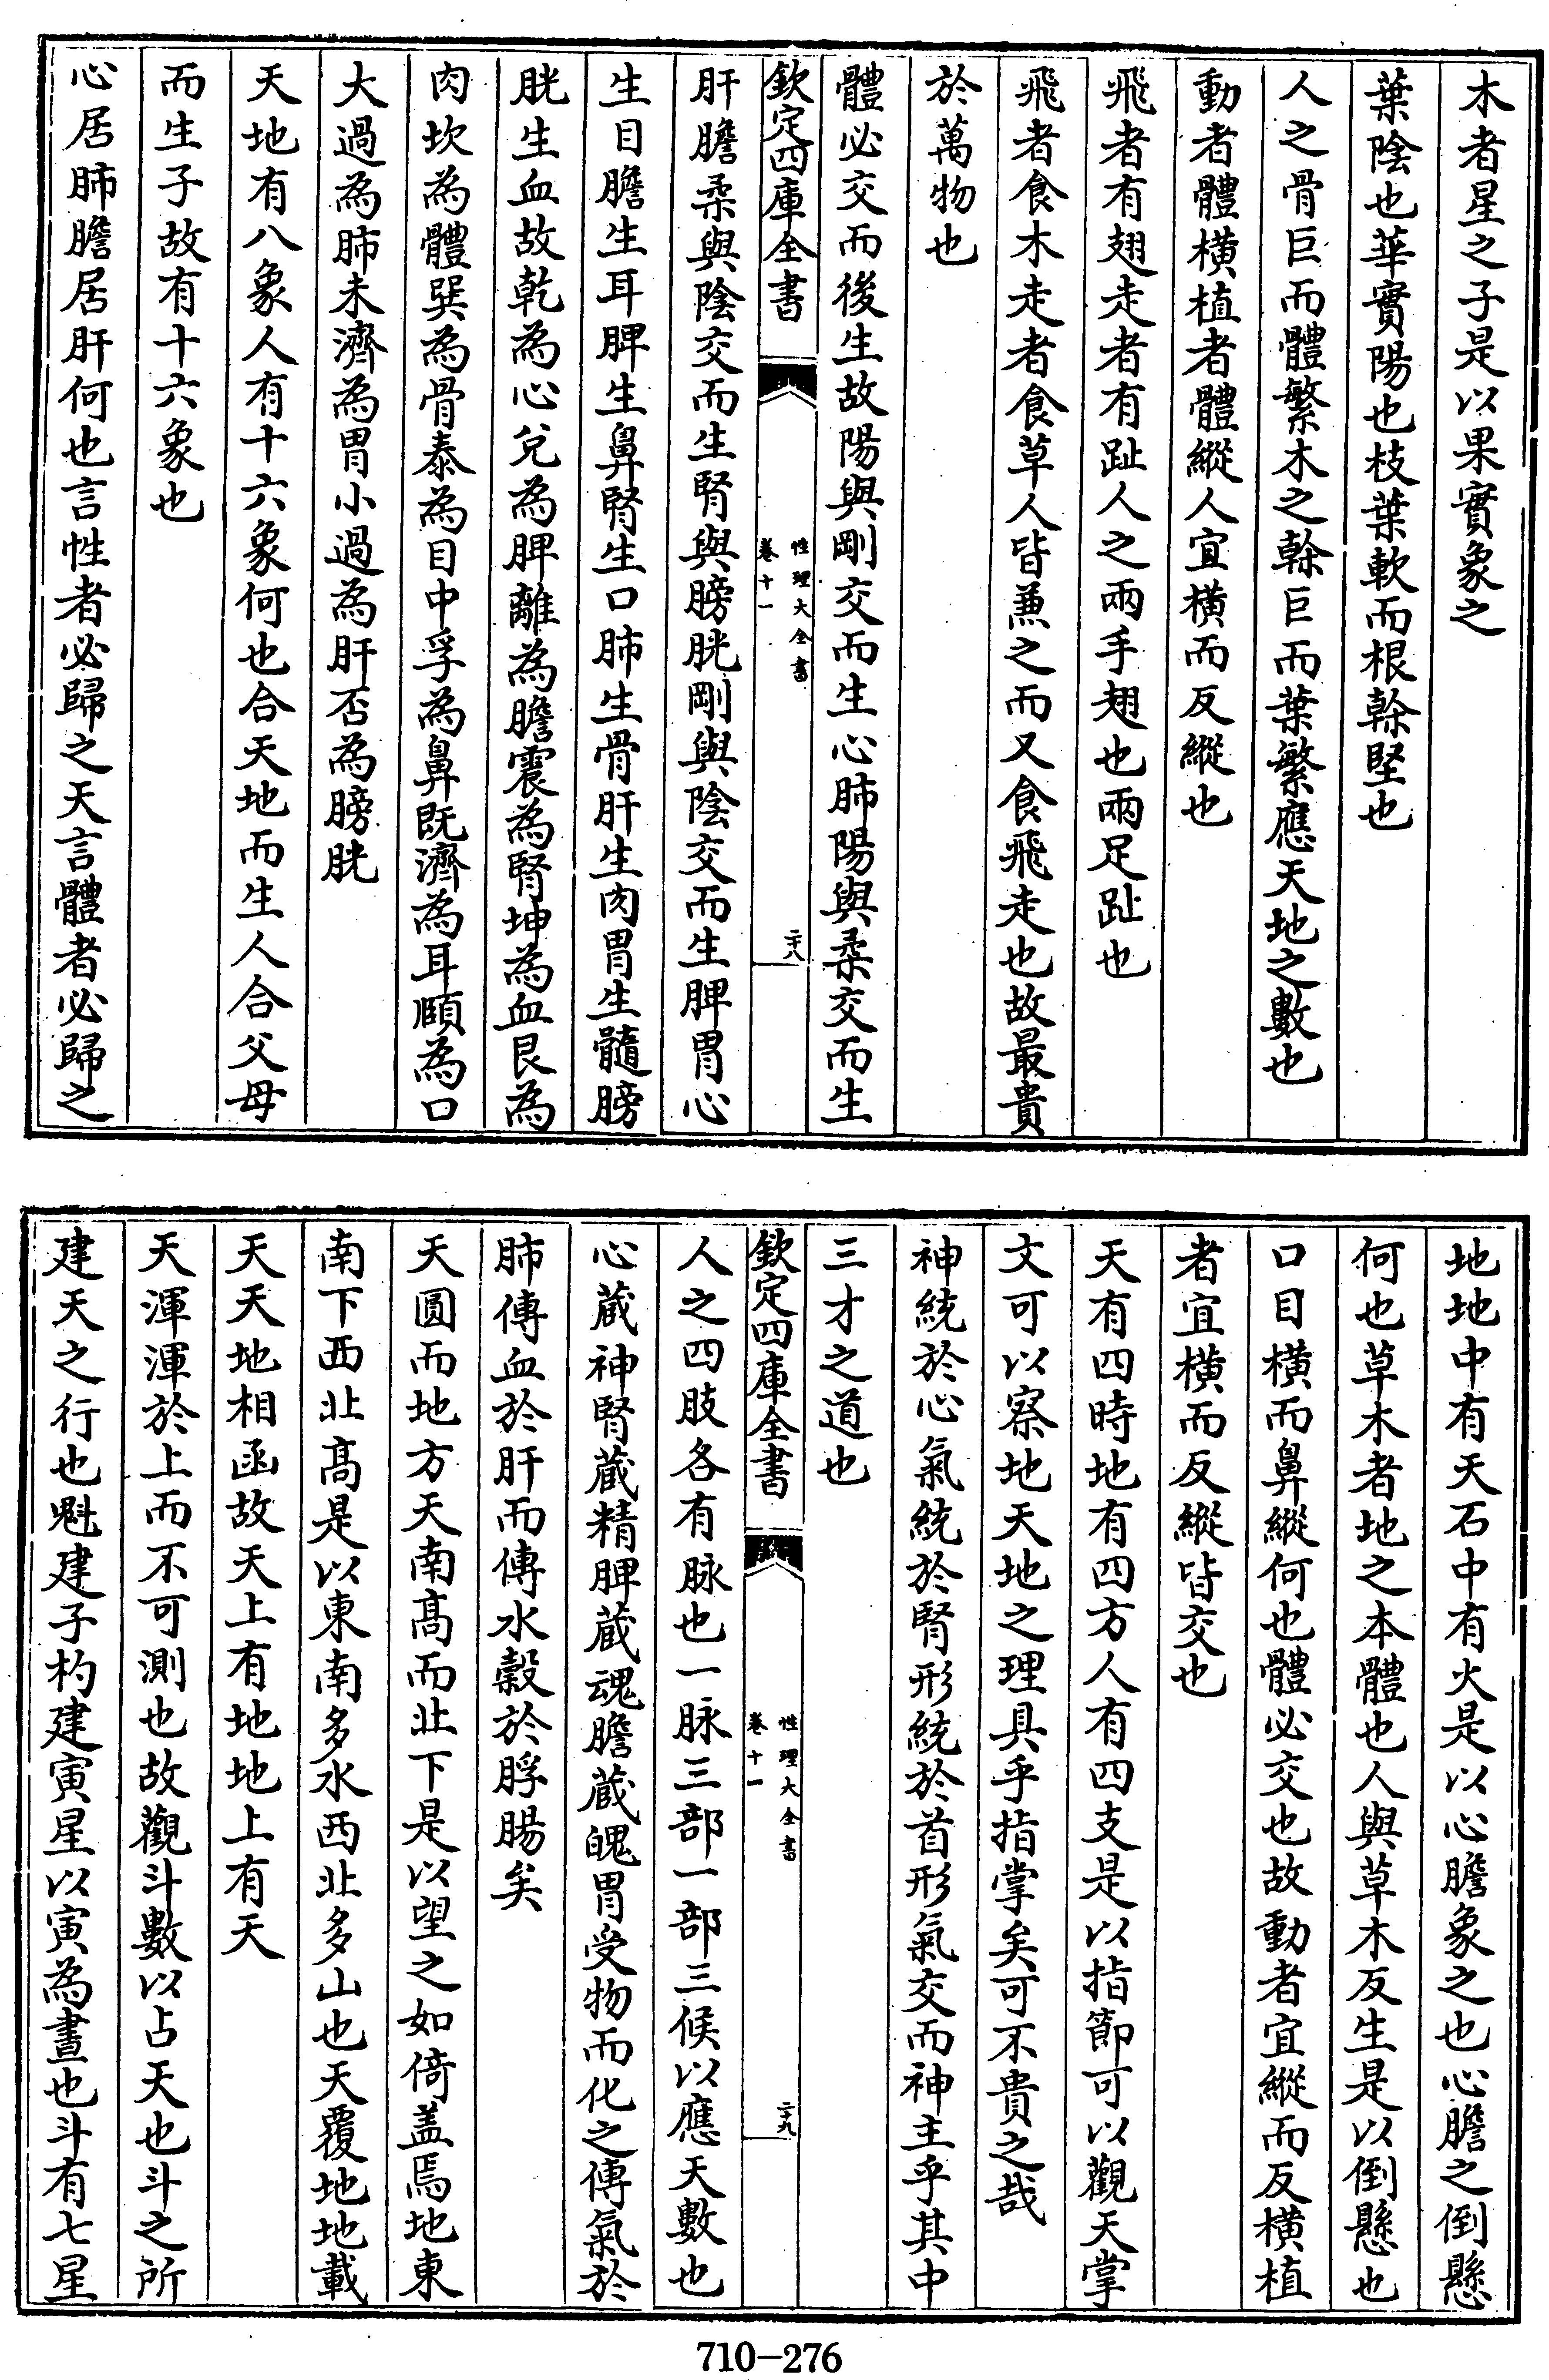 木者星之子是以果實象之
葉陰也華實陽也枝葉軟而根榦堅也
人之骨巨而體繁木之榦巨而葉繁應天地之數也
動者體橫植者體縱人宜橫而反縱也
飛者有翅走者有趾人之兩手翅也兩足趾也
飛者食木走者食草人皆兼之而又食飛走也故最貴
於萬物也
體必交而後生故陽與剛交而生心肺陽與柔交而生
欽定四庫全書
性理大全書
卷十一
二十八
肝膽柔與陰交而生腎與膀胱剛與陰交而生脾胃心
生目膽生耳脾生鼻腎生口肺生骨肝生肉胃生髓膀
胱生血故乾為心兌為脾離為膽震為腎坤為血艮為
肉坎為髓巽為骨泰為目中孚為鼻既濟為耳頤為口
大過為肺未濟為胃小過為肝否為膀胱
天地有八象人有十六象何也合天地而生人合父母
而生子故有十六象也
心居肺膽居肝何也言性者必歸之天言體者必歸之
地地中有天石中有火是以心膽象之也心膽之倒懸
何也草木者地之本體也人與草木反生是以倒懸也
口目橫而鼻縱何也體必交也故動者宜縱而反橫植
者宜橫而反縱皆交也
天有四時地有四方人有四支是以指節可以觀天掌
文可以察地天地之理具乎指掌矣可不貴之哉
神統於心氣統於腎形統於首形氣交而神主乎其中
三才之道也
欽定四庫全書
性理大全書
卷十一
二十九
人之四肢各有脉也一脉三部一部三候以應天數也
心蔵神腎蔵精脾蔵魂膽蔵魄胃受物而化之傳氣於
肺傳血於肝而傳水穀於脬腸矣
天圓而地方天南髙而北下是以望之如倚盖焉地東
南下西北髙是以東南多水西北多山也天覆地地載
天天地相函故天上有地地上有天
天渾渾於上而不可測也故觀斗數以占天也斗之所
建天之行也魁建子杓建寅星以寅為晝也斗有七星
710-276